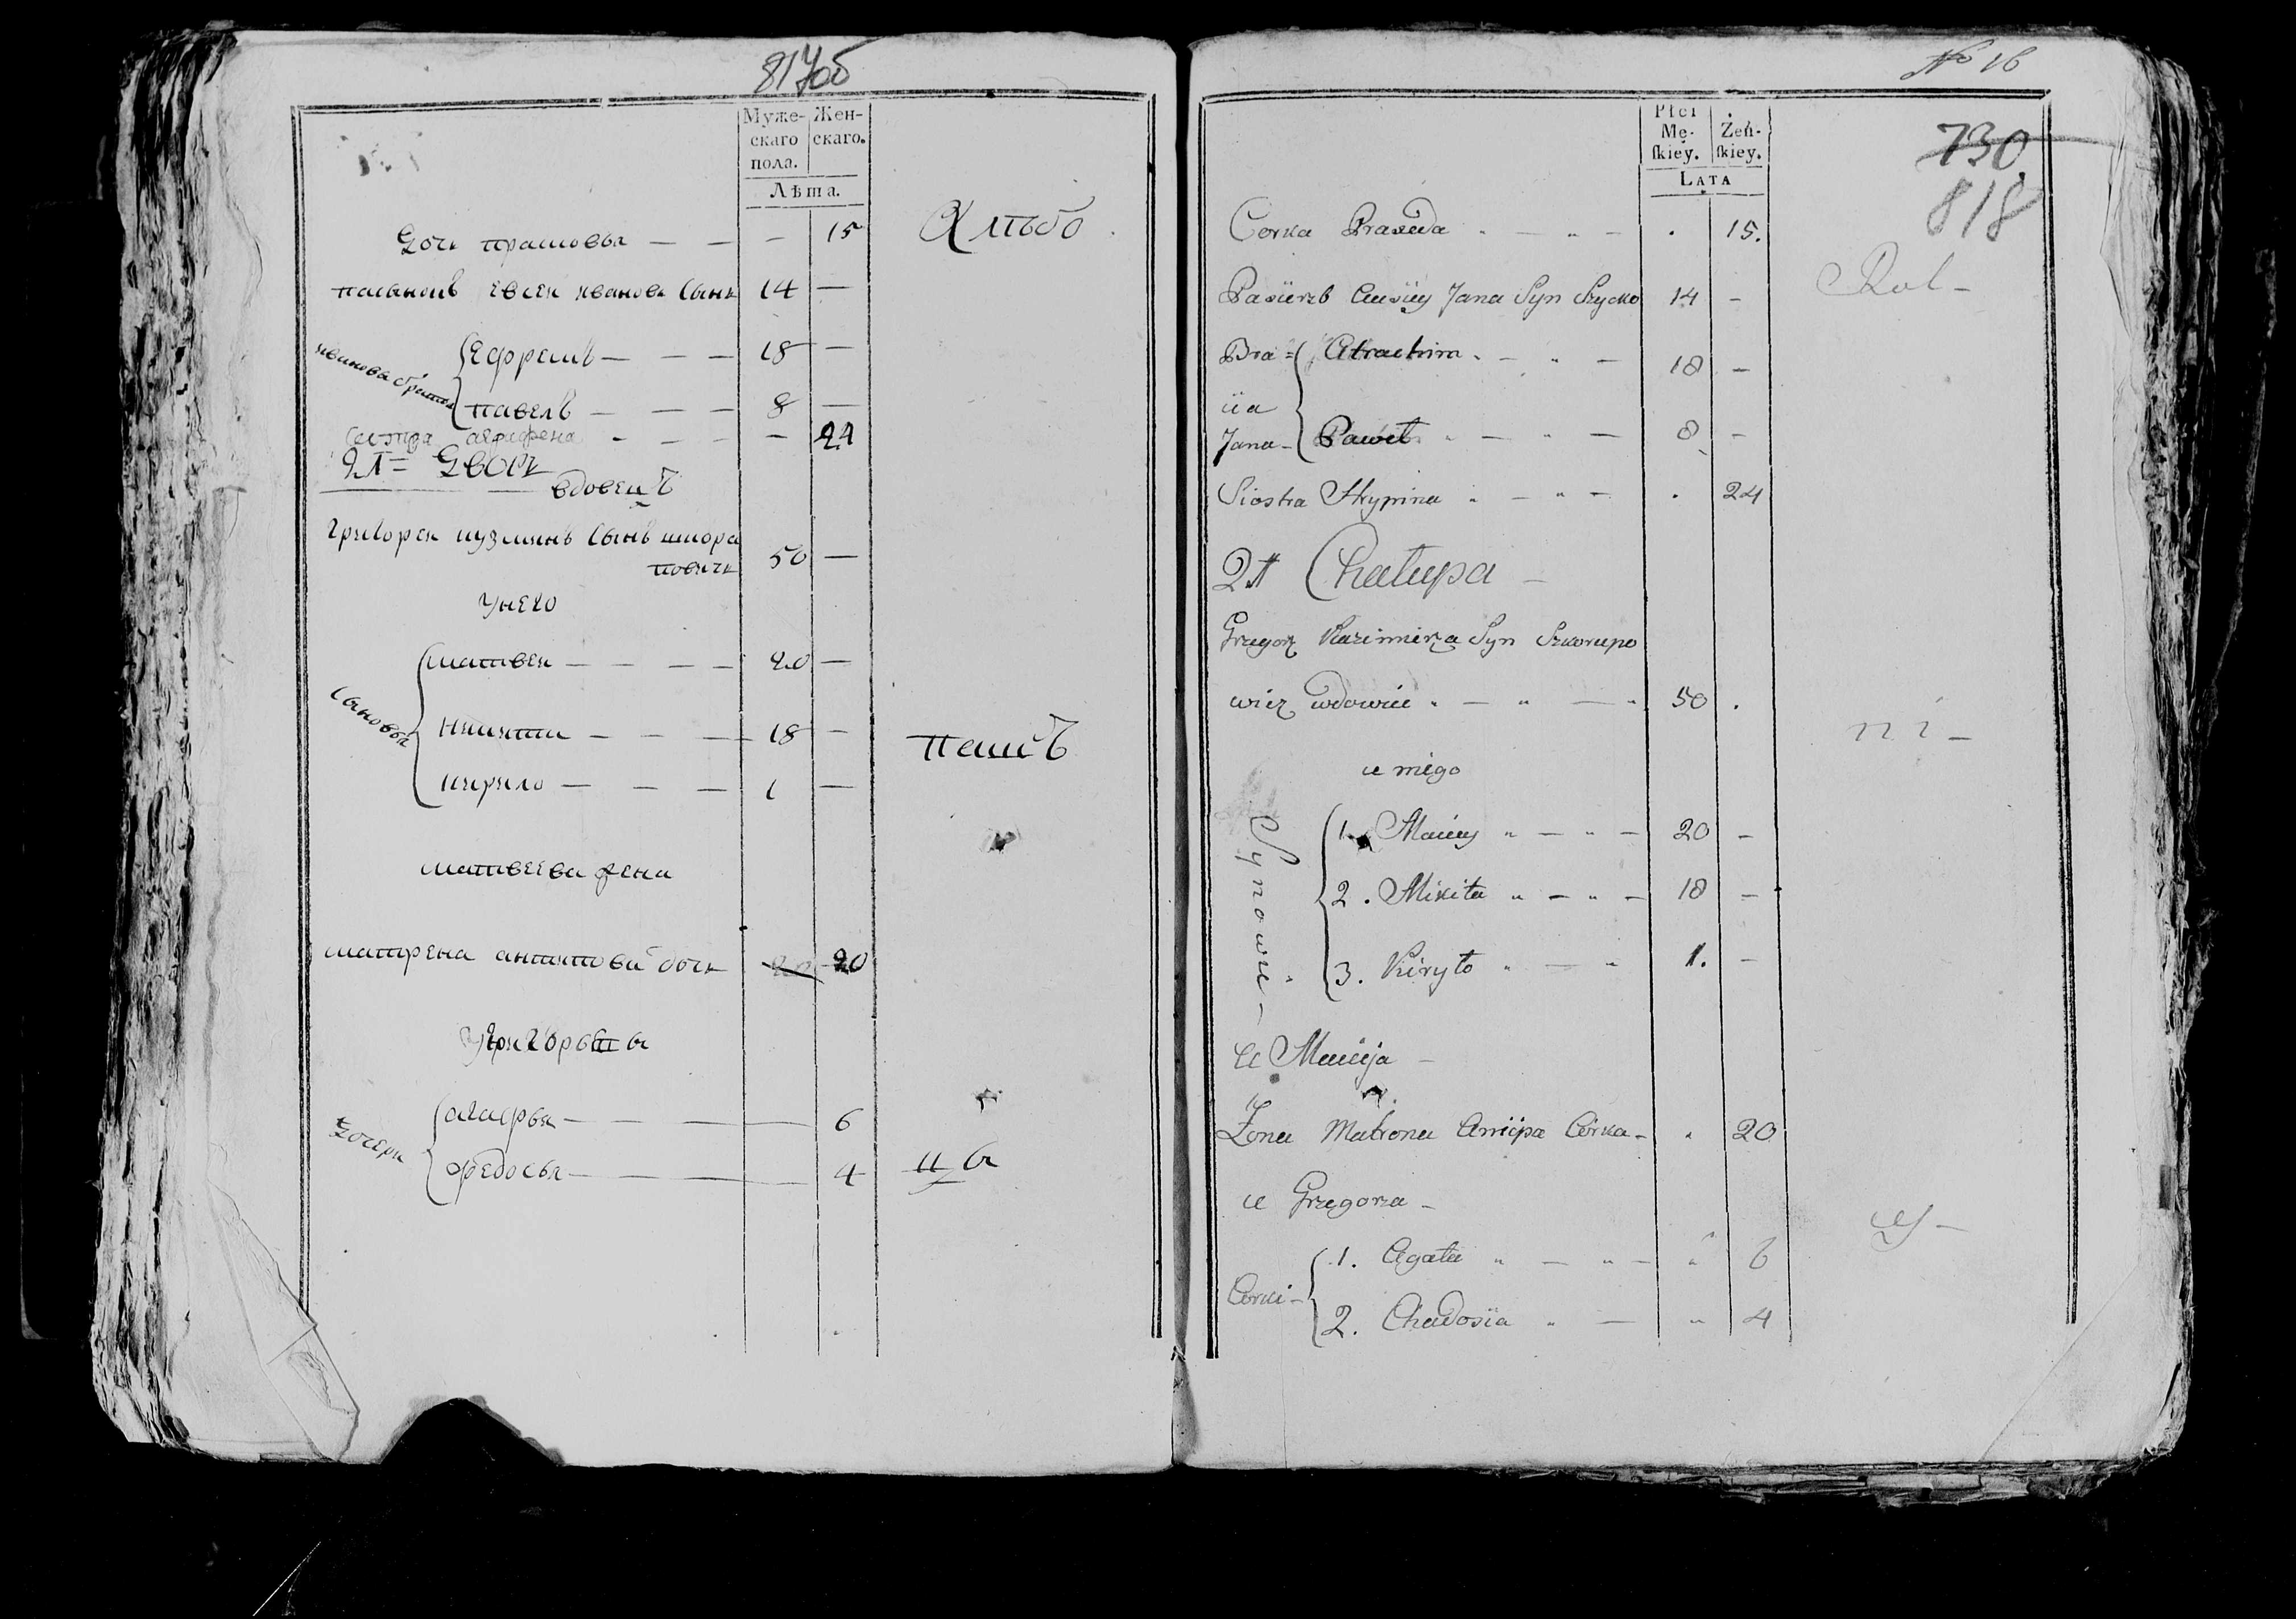 817об
Муже-
скаго
пола.
Жен-
скаго.
Лѣта.
Дочь прасковья — — — 15
Хлѣбо
пасынокъ евсеи иванова сынъ 14 —
ивановы братья
ефремъ — — — 18 —
павелъ — — — 8 —
сестра — — — — 24
21= Дворъ
вдовецъ
григореи кузминъ сынъ шкора
повичъ 50 —
у него
сыновья
матвеи — — — — 20 —
никита — — — 18 —
кирило — — — 1 —
пашъ
матвеева жена
матрена антипова дочь 20 20
у григорья
дочери
агафья — — — — 6
федосья — — — — 4
цы
№ 16
Płci
Mę-
ſkiey.
Żeń-
ſkiey.
LATA
730
818
Corka Praxeda . — „ — . 15.
Rol —
Pasierzb Jana Syn Szycko 14 —
Bra=
cia
Jana —
— „ — 18 —
Paweł „ — „ — 8 —
Siostra Hrypina „ — „ — . 24
21 Chałupa —
Grzegorz Kazimierza Syn Szkorupo
wicz wdowiec „ — „ — „ 50 .
ni —
u niego
Synowie —
1. Maciey „ — „ — 20 —
2. Mikita „ — „ — 18 —
3. Kiryło „ — „ 1. —
u Macieja —
Żona Matrona Corka — „ 20
u Grzegorza —
cy —
Corki —
1. Agata „ — „ — „ 6
2. Chadosia „ — „ 4